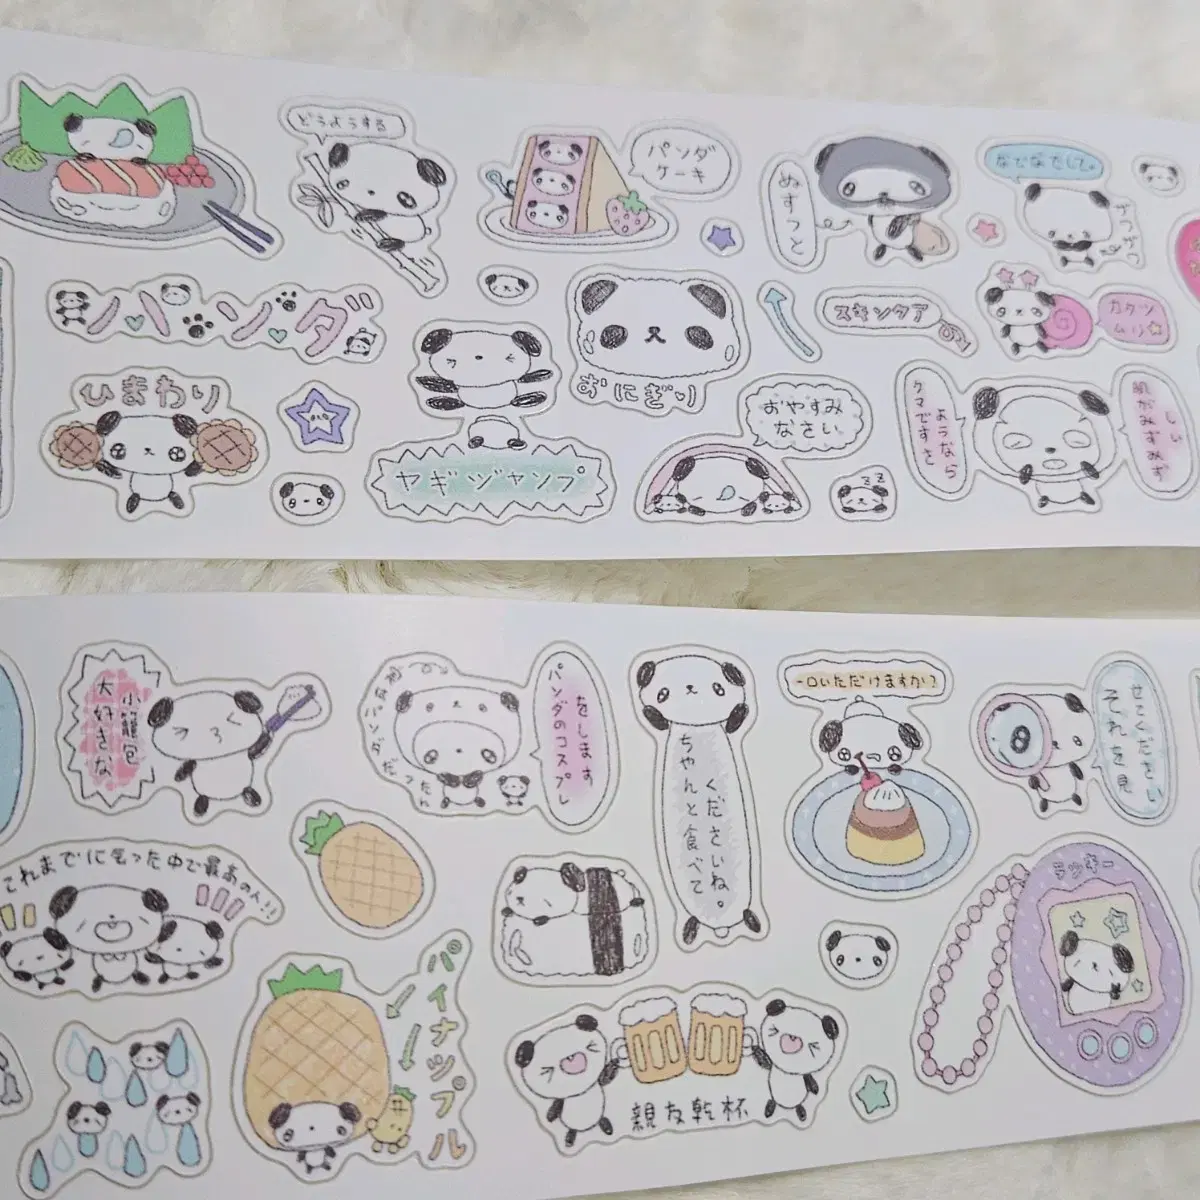 どうようする
パンダ
ケーキ
ぬすっと
なでなでして。
パンダ
スキンケア
カタツ
ムリ
ひまわり
おにぎり
おやすみ
なさい
ヤギジャンプ
クマですさ
ようなら
zzz
小籠包
大好きな
をします
パンダのコスプレ
くださいね。
ちゃんと食べて
一口いただけますか?
せてください
それを見
これまでに会った中で最高の人!!
ラッキー
パイナップル
親友乾杯